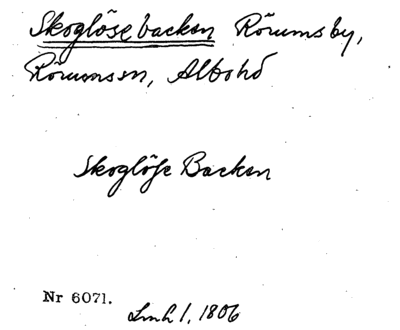 Skoglösebacken Rörums by,
Rörums sn, Albo hd
Skoglöse Backen
Nr 6071.
Lmh 1, 1806